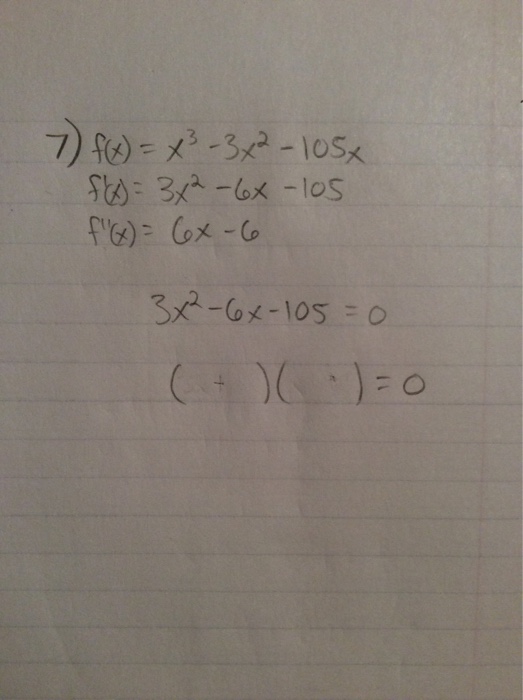 7) f(x) = x³ - 3x² - 105x
f'(x) = 3x² - 6x - 105
f"(x) = 6x - 6
3x² - 6x - 105 = 0
( + )( · ) = 0